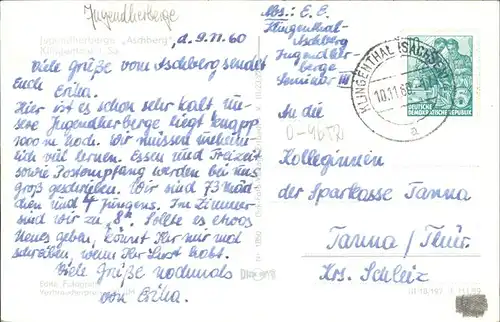 Jugendherberge
Jugendherberge „Aschberg"
Klingenthal Sa.
d. 9.11.60
Viele Grüße vom Aschberg sendet
Euch Erika.
Hier ist es schon sehr kalt, un-
sere Jugendherberge liegt knapp
1000 m hoch. Wir müssen unheim-
lich viel lernen. Essen und Freizeit
sowie Postempfang werden bei uns
groß geschrieben. Wir sind 73 Mäd-
chen und 4 Jungens. Im Zimmer
sind wir zu „8". Sollte es etwas
Neues geben, könnt Ihr mir mal
schreiben, wenn Ihr Lust habt.
Viele Grüße nochmals
von Erika.
Abs.: E. E.
Klingenthal-
Aschberg
Jugendher-
berge
Seminar III
KLINGENTHAL (SACHS)
10.11.60
a
DEUTSCHE
DEMOKRATISCHE REPUBLIK
An die
Kolleginnen
der Sparkasse Tanna
Tanna / Thür.
Krs. Schleiz